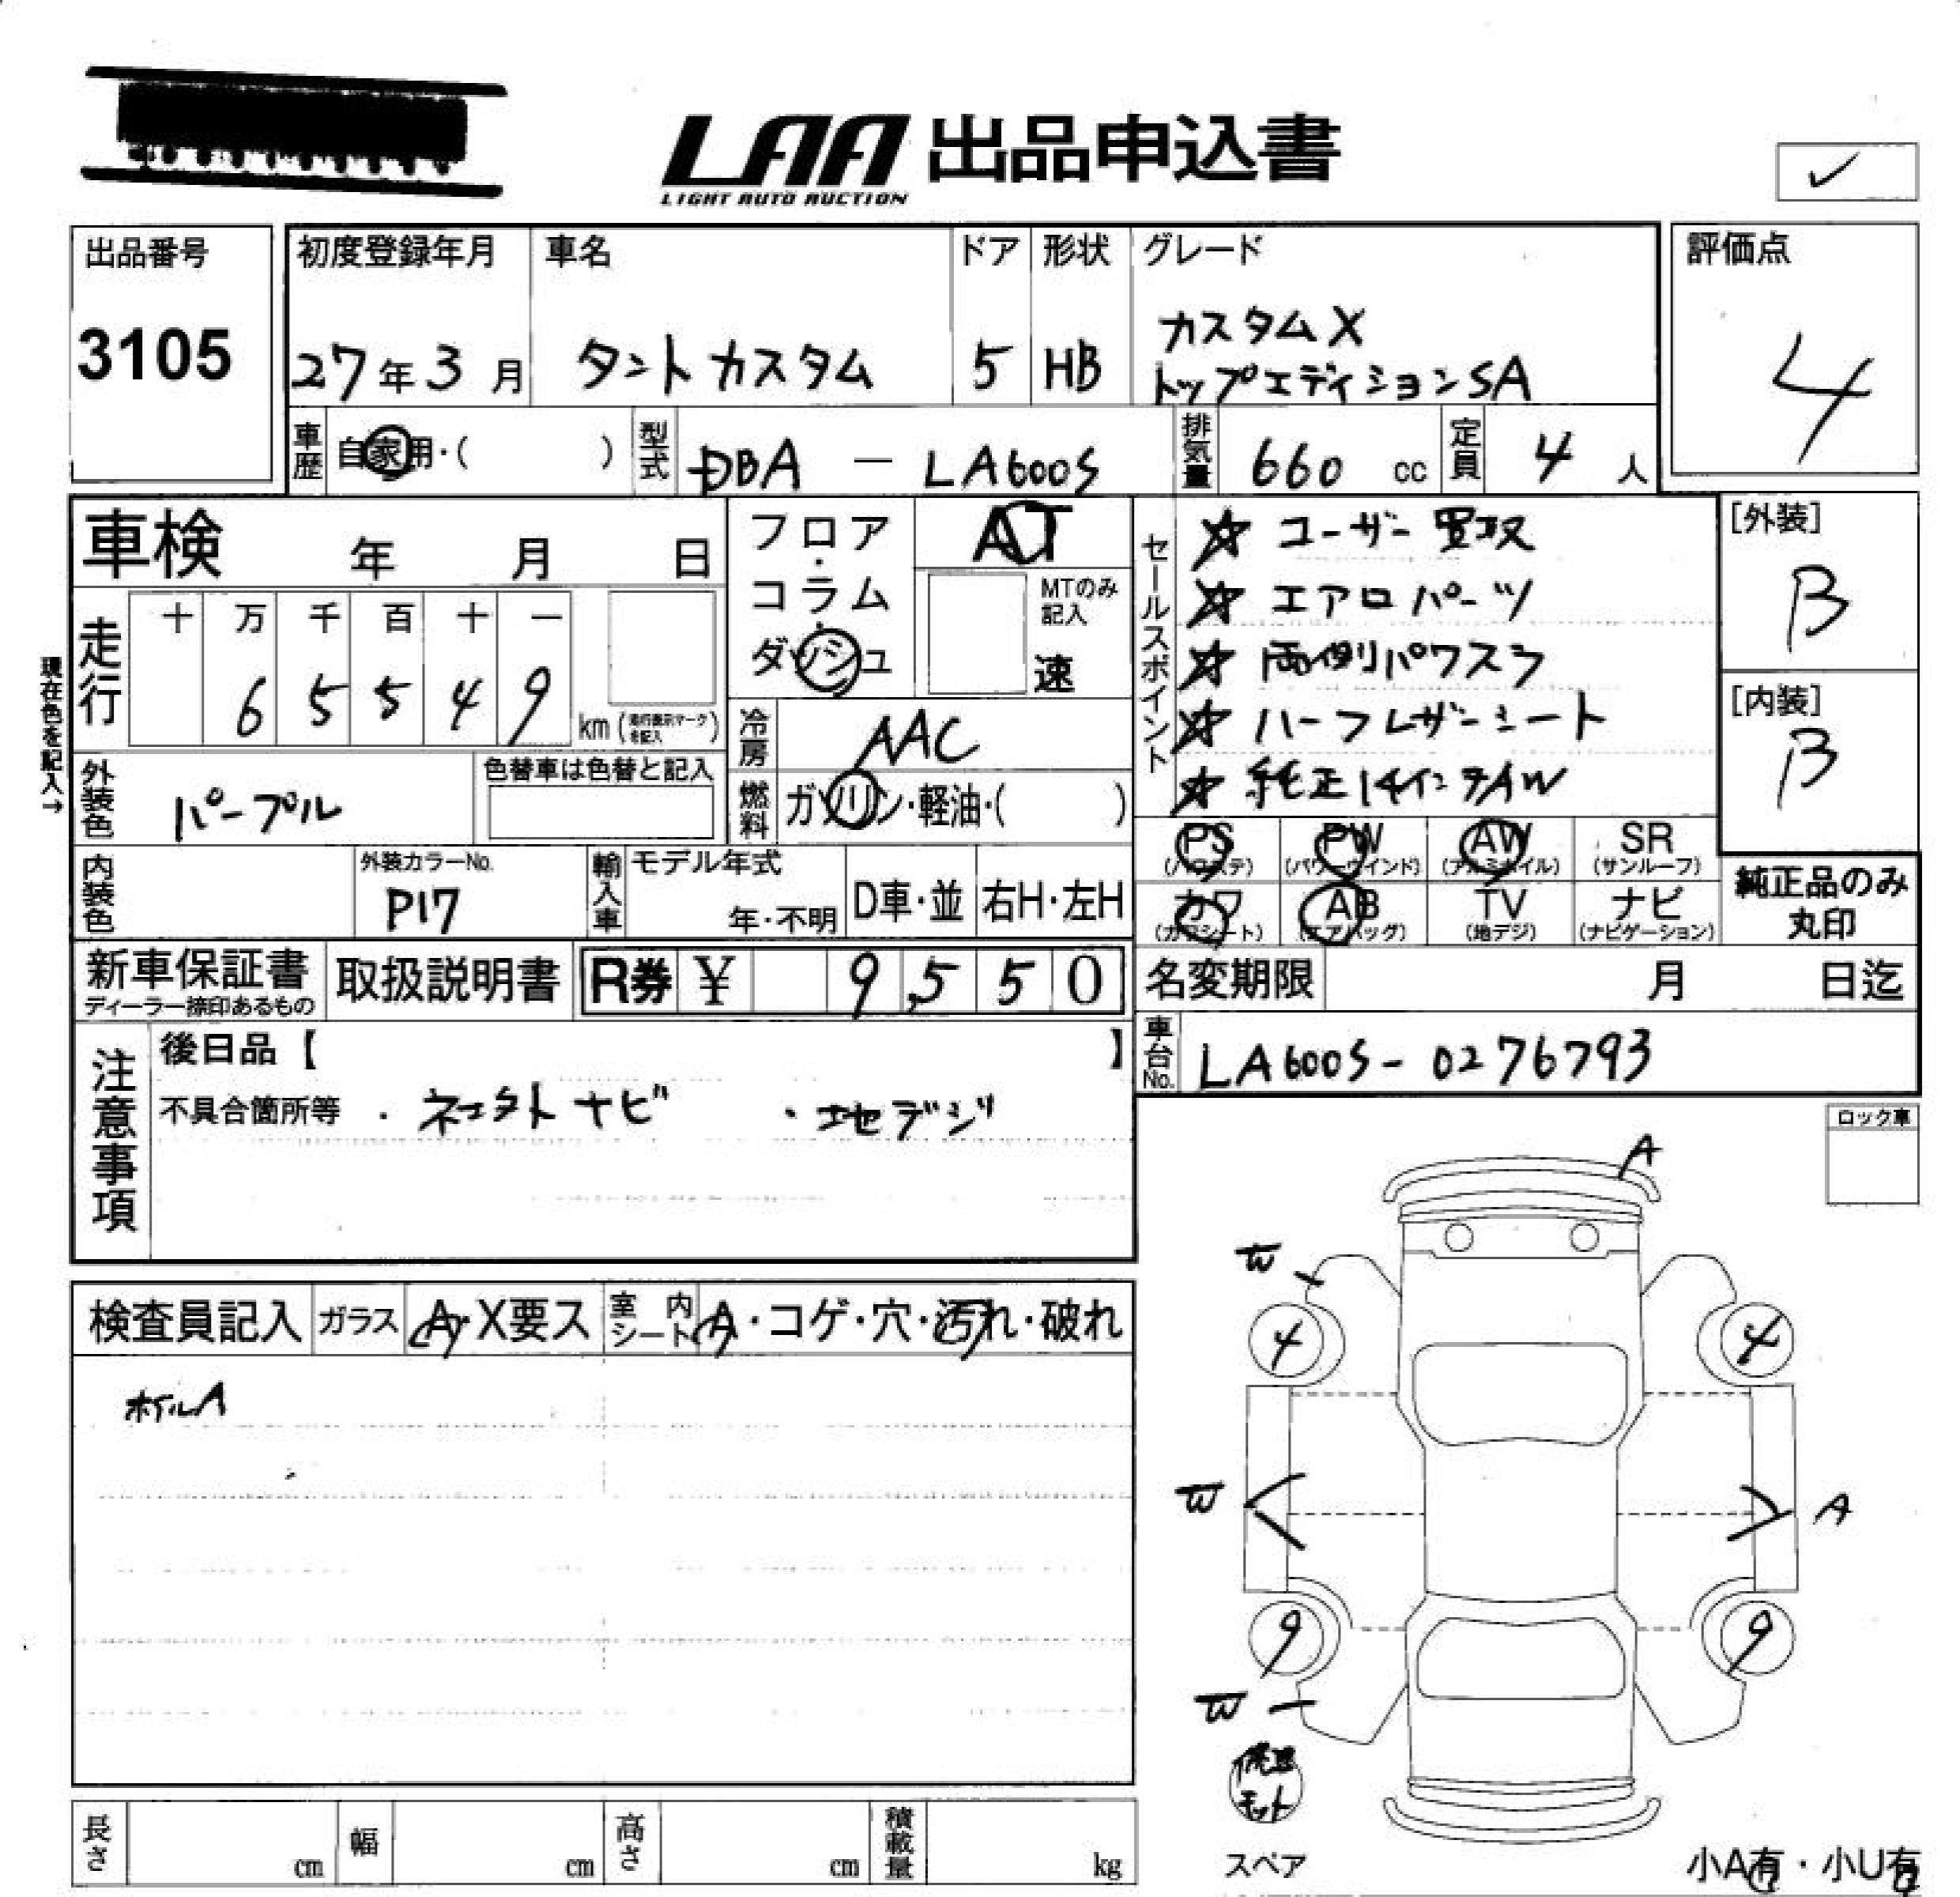 LAA 出品申込書
LIGHT AUTO AUCTION
✓
出品番号
3105
初度登録年月
27年3月
車名
タントカスタム
ドア
5
形状
HB
グレード
カスタムX
トップエディションSA
評価点
4
車歴 自家用・( )
型式 DBA — LA600S
排気量 660 cc
定員 4 人
車検 年 月 日
フロア・コラム・ダッシュ
AT
MTのみ記入
速
セールスポイント
☆ユーザー買取
☆エアロパーツ
☆両側パワスラ
☆ハーフレザーシート
☆純正14インチAW
[外装]
B
[内装]
B
現在色を記入→
走行
十 万 千 百 十 一
6 5 5 4 9 km
冷房 AAC
燃料 ガソリン・軽油・( )
外装色 パープル
色替車は色替と記入
PS (パワステ)
PW (パワーウインド)
AW (アルミホイル)
SR (サンルーフ)
カワ (カワシート)
AB (エアバッグ)
TV (地デジ)
ナビ (ナビゲーション)
純正品のみ
丸印
内装色
外装カラーNo.
P17
輸入車
モデル年式
年・不明
D車・並
右H・左H
新車保証書
ディーラー捺印あるもの
取扱説明書
R券 ¥ 9,550
名変期限 月 日迄
注意事項
後日品【 】
不具合箇所等 ・コネクトナビ ・エセデジ
車台No. LA600S-0276793
ロック車
A
W
4 4
W A
9 9
W
修理キット
スペア
小A有・小U有
検査員記入
ガラス A・X要ス
室内シート A・コゲ・穴・汚れ・破れ
ホイルA
長さ cm
幅 cm
高さ cm
積載量 kg